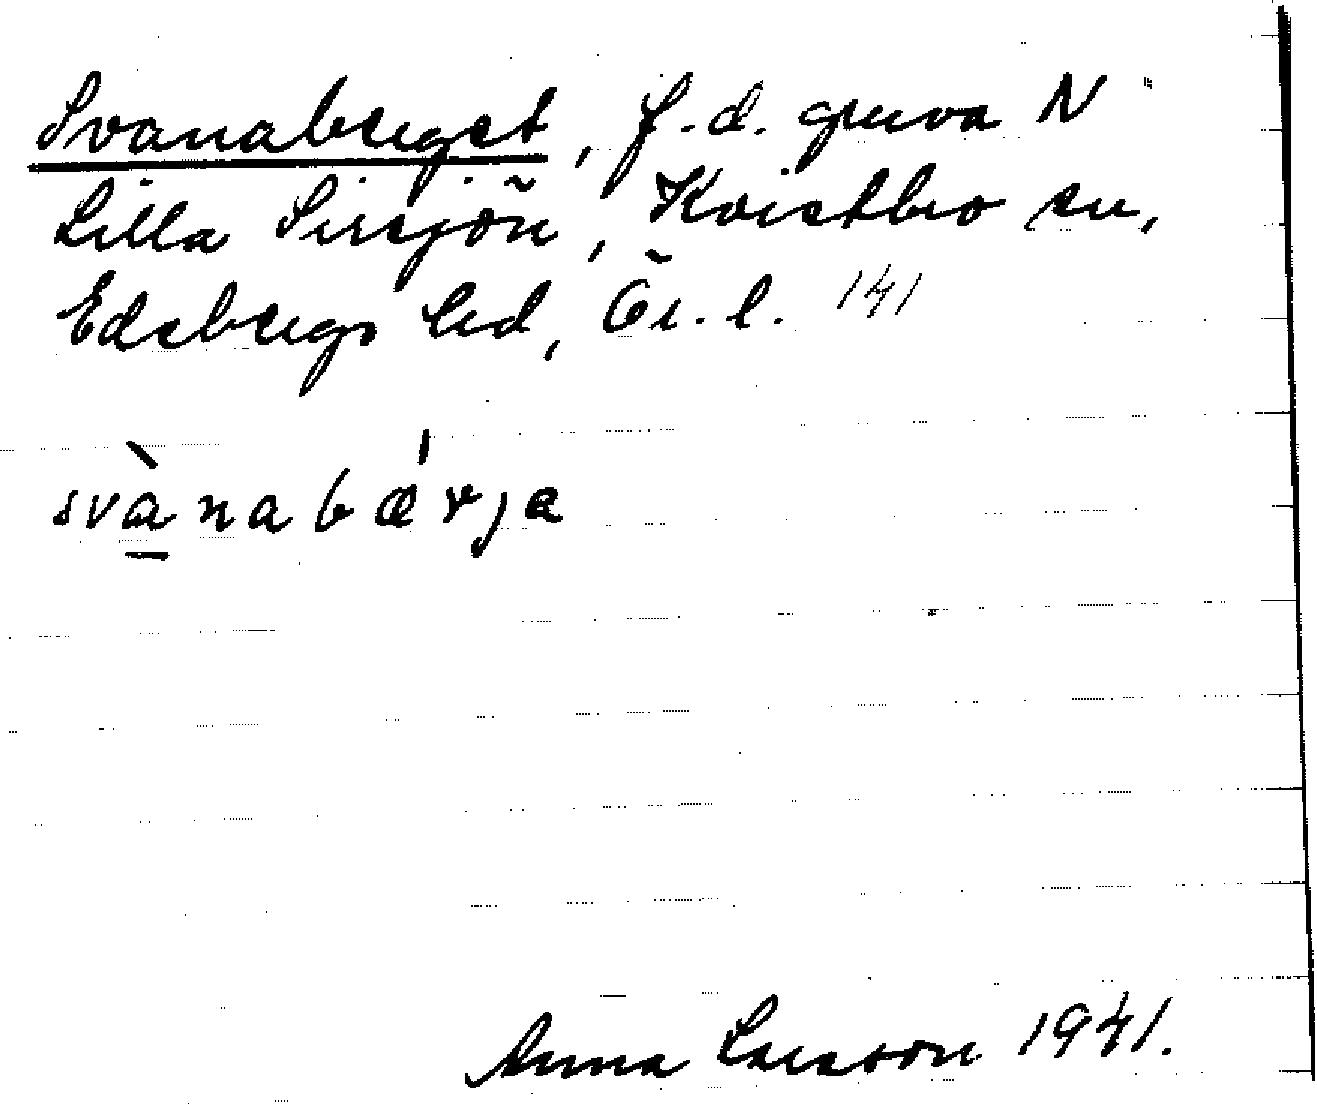 Svanaberget, f.d. gruva N
Lilla Sirsjön, Kvistbro sn,
Edsbergs hd, Ör. l. 141
svànabǽrja
Anna Larsson 1941.